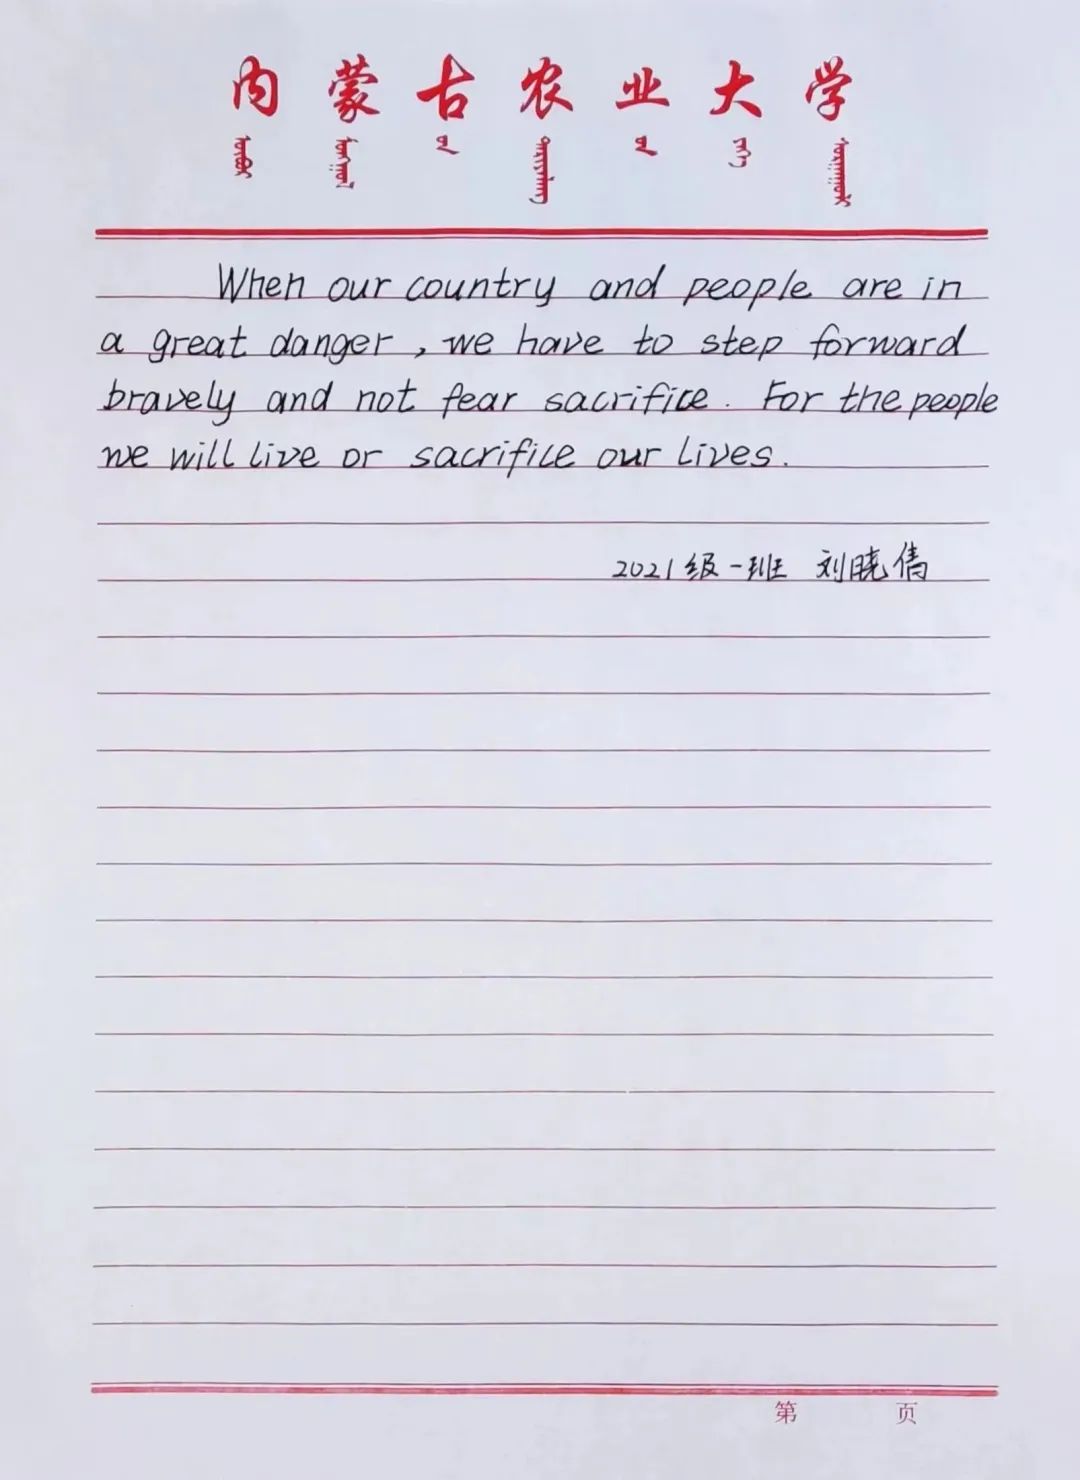 内蒙古农业大学
When our country and people are in
a great danger, we have to step forward
bravely and not fear sacrifice. For the people
we will live or sacrifice our lives.
2021级一班 刘晓倩
第 页